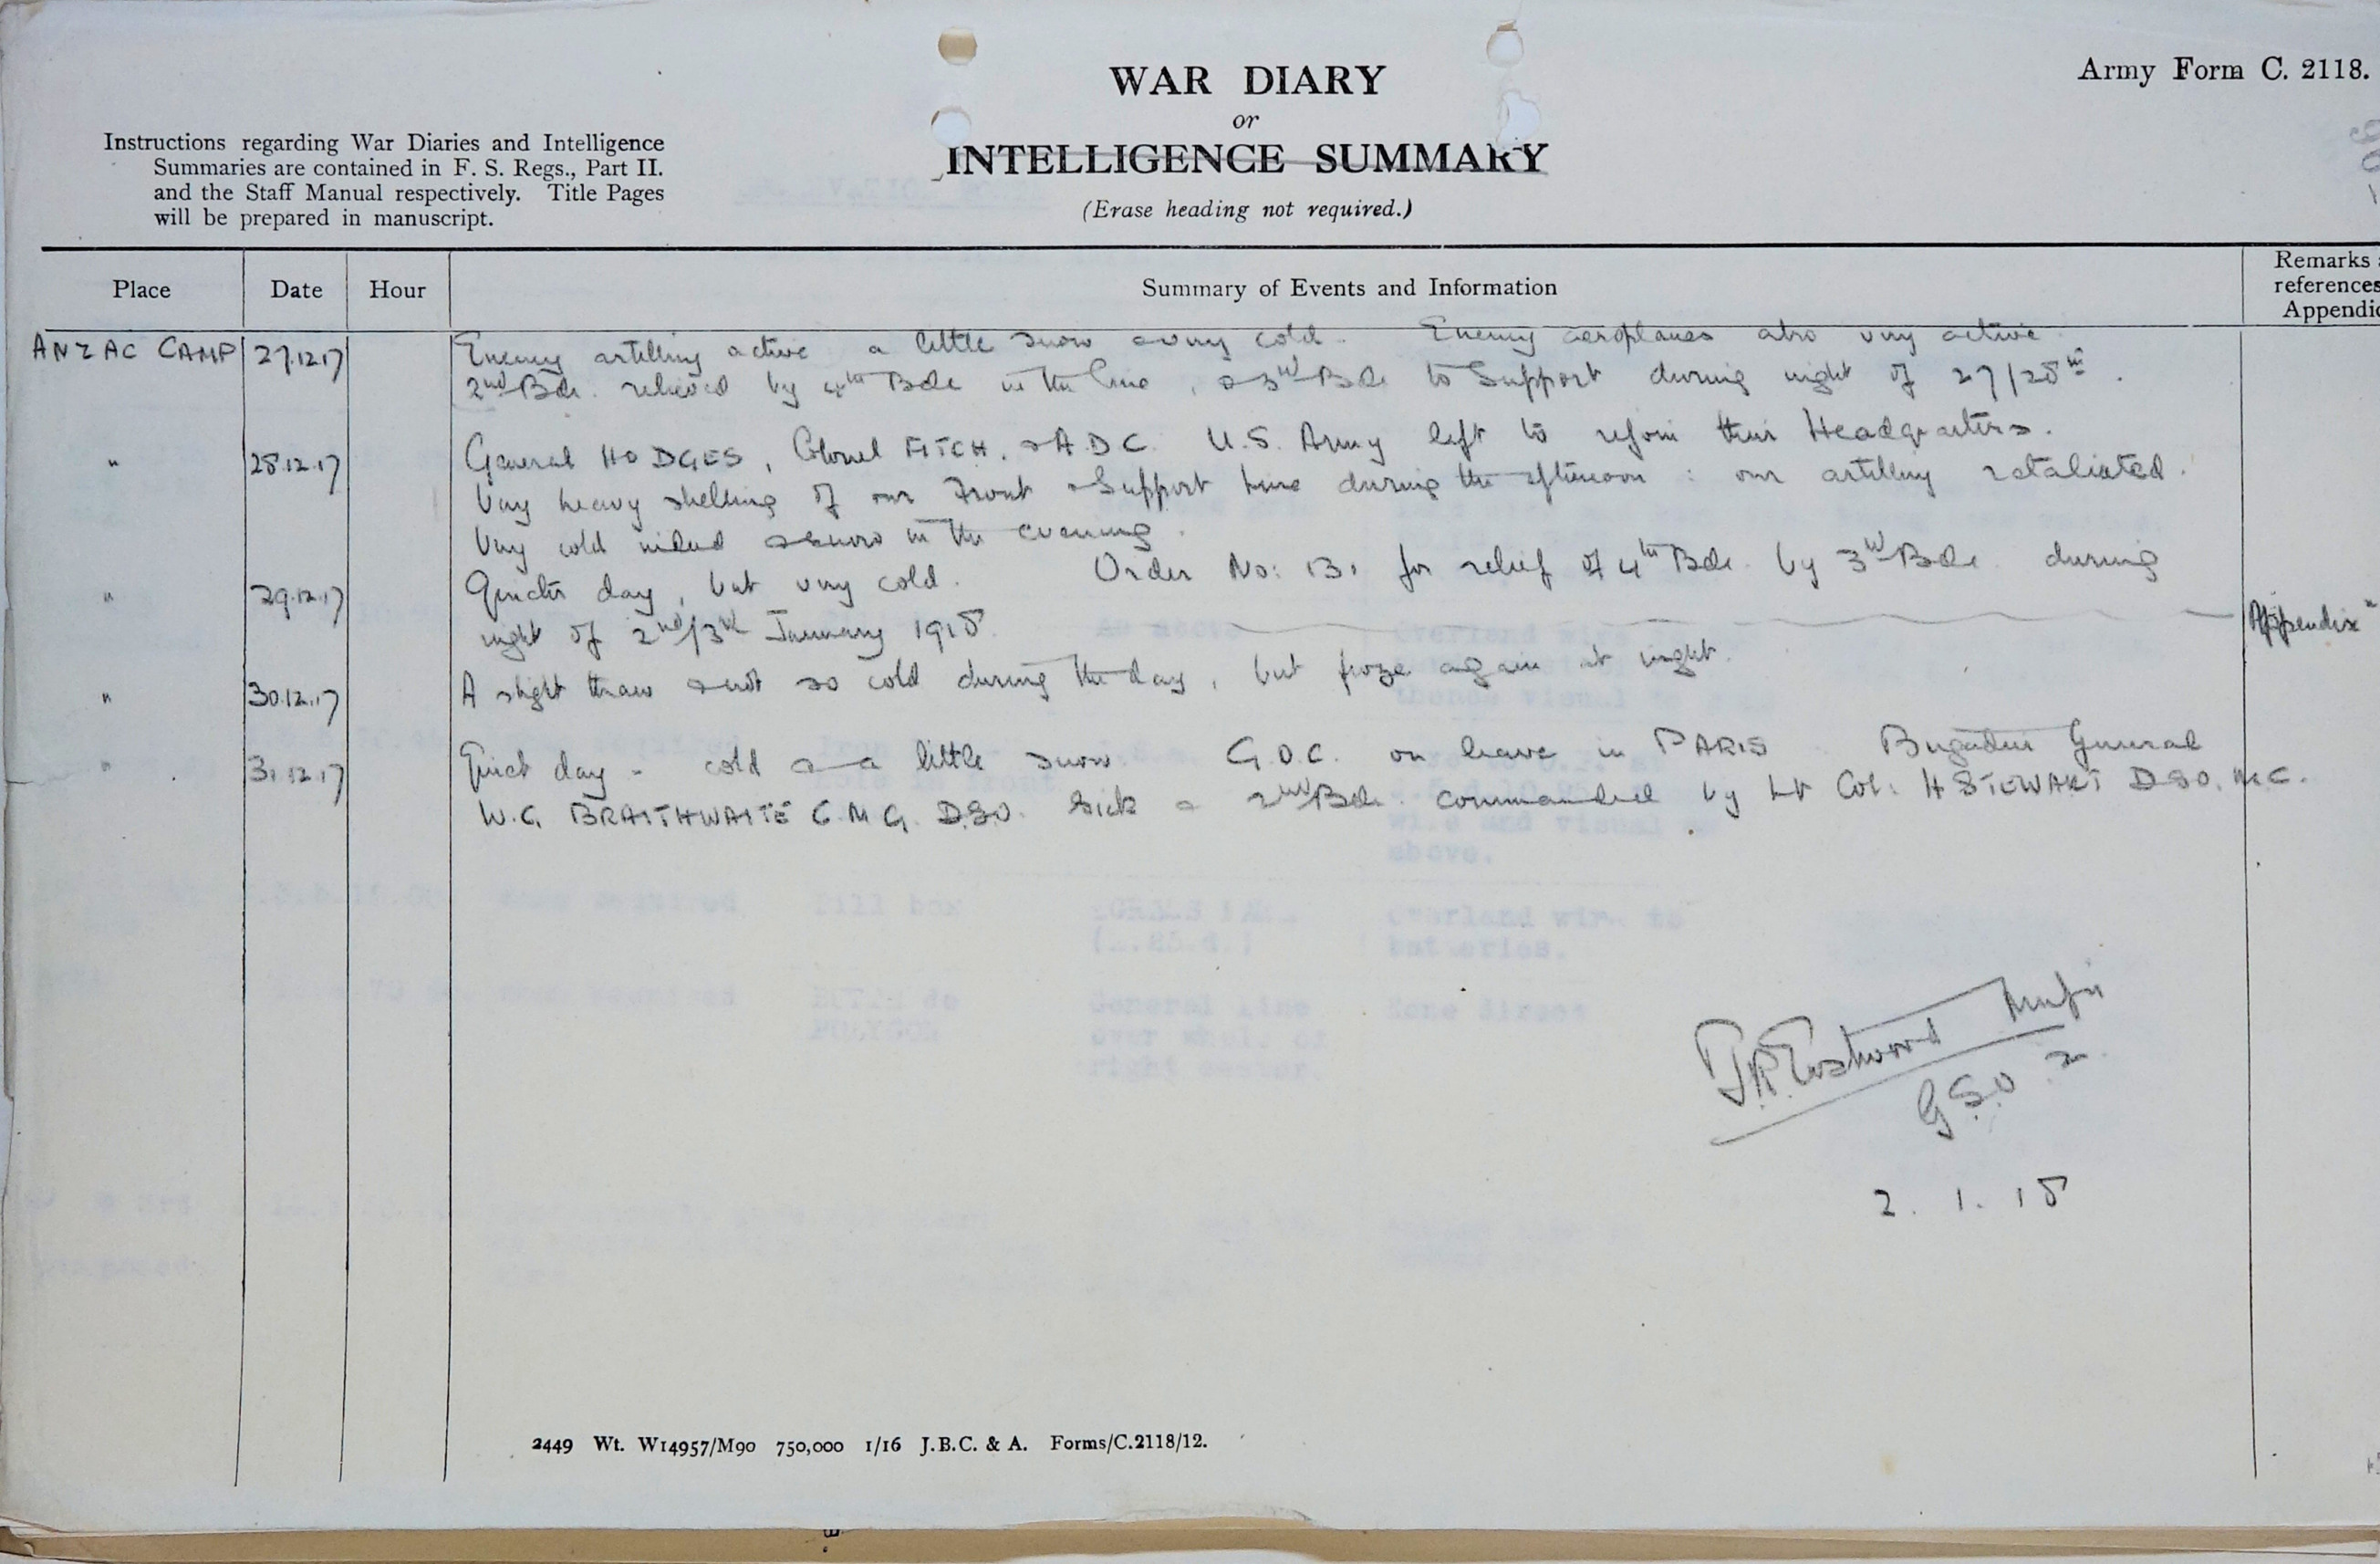 Army Form C. 2118.
WAR DIARY
or
INTELLIGENCE SUMMARY
(Erase heading not required.)
Instructions regarding War Diaries and Intelligence
Summaries are contained in F. S. Regs., Part II.
and the Staff Manual respectively. Title Pages
will be prepared in manuscript.
Place Date Hour Summary of Events and Information
Remarks
references
Appendic
ANZAC CAMP 27.12.17 Enemy artillery active a little snow & very cold. Enemy aeroplanes also very active
2nd Bde. relieved by 4th Bde in the line, & 3rd Bde to Support during night of 27/28th.
" 28.12.17 General HODGES, Colonel FITCH, & A.D.C. U.S. Army left to rejoin their Headquarters.
Very heavy shelling of our Front & Support line during the afternoon : our artillery retaliated.
Very cold indeed & snow in the evening.
" 29.12.17 Quieter day, but very cold. Order No: 131 for relief of 4th Bde. by 3rd Bde. during
night of 2nd/3rd January 1918. Appendix
" 30.12.17 A slight thaw & not so cold during the day, but froze again at night.
" 31.12.17 Quiet day - cold & a little snow. G.O.C. on leave in PARIS. Brigadier General
W.G. BRAITHWAITE C.M.G. D.S.O. sick & 2nd Bde. commanded by Lt Col: H STEWART D.S.O. M.C.
T.R. Eastwood Major
G.S.O 2
2. 1. 18
2449 Wt. W14957/M90 750,000 1/16 J.B.C. & A. Forms/C.2118/12.